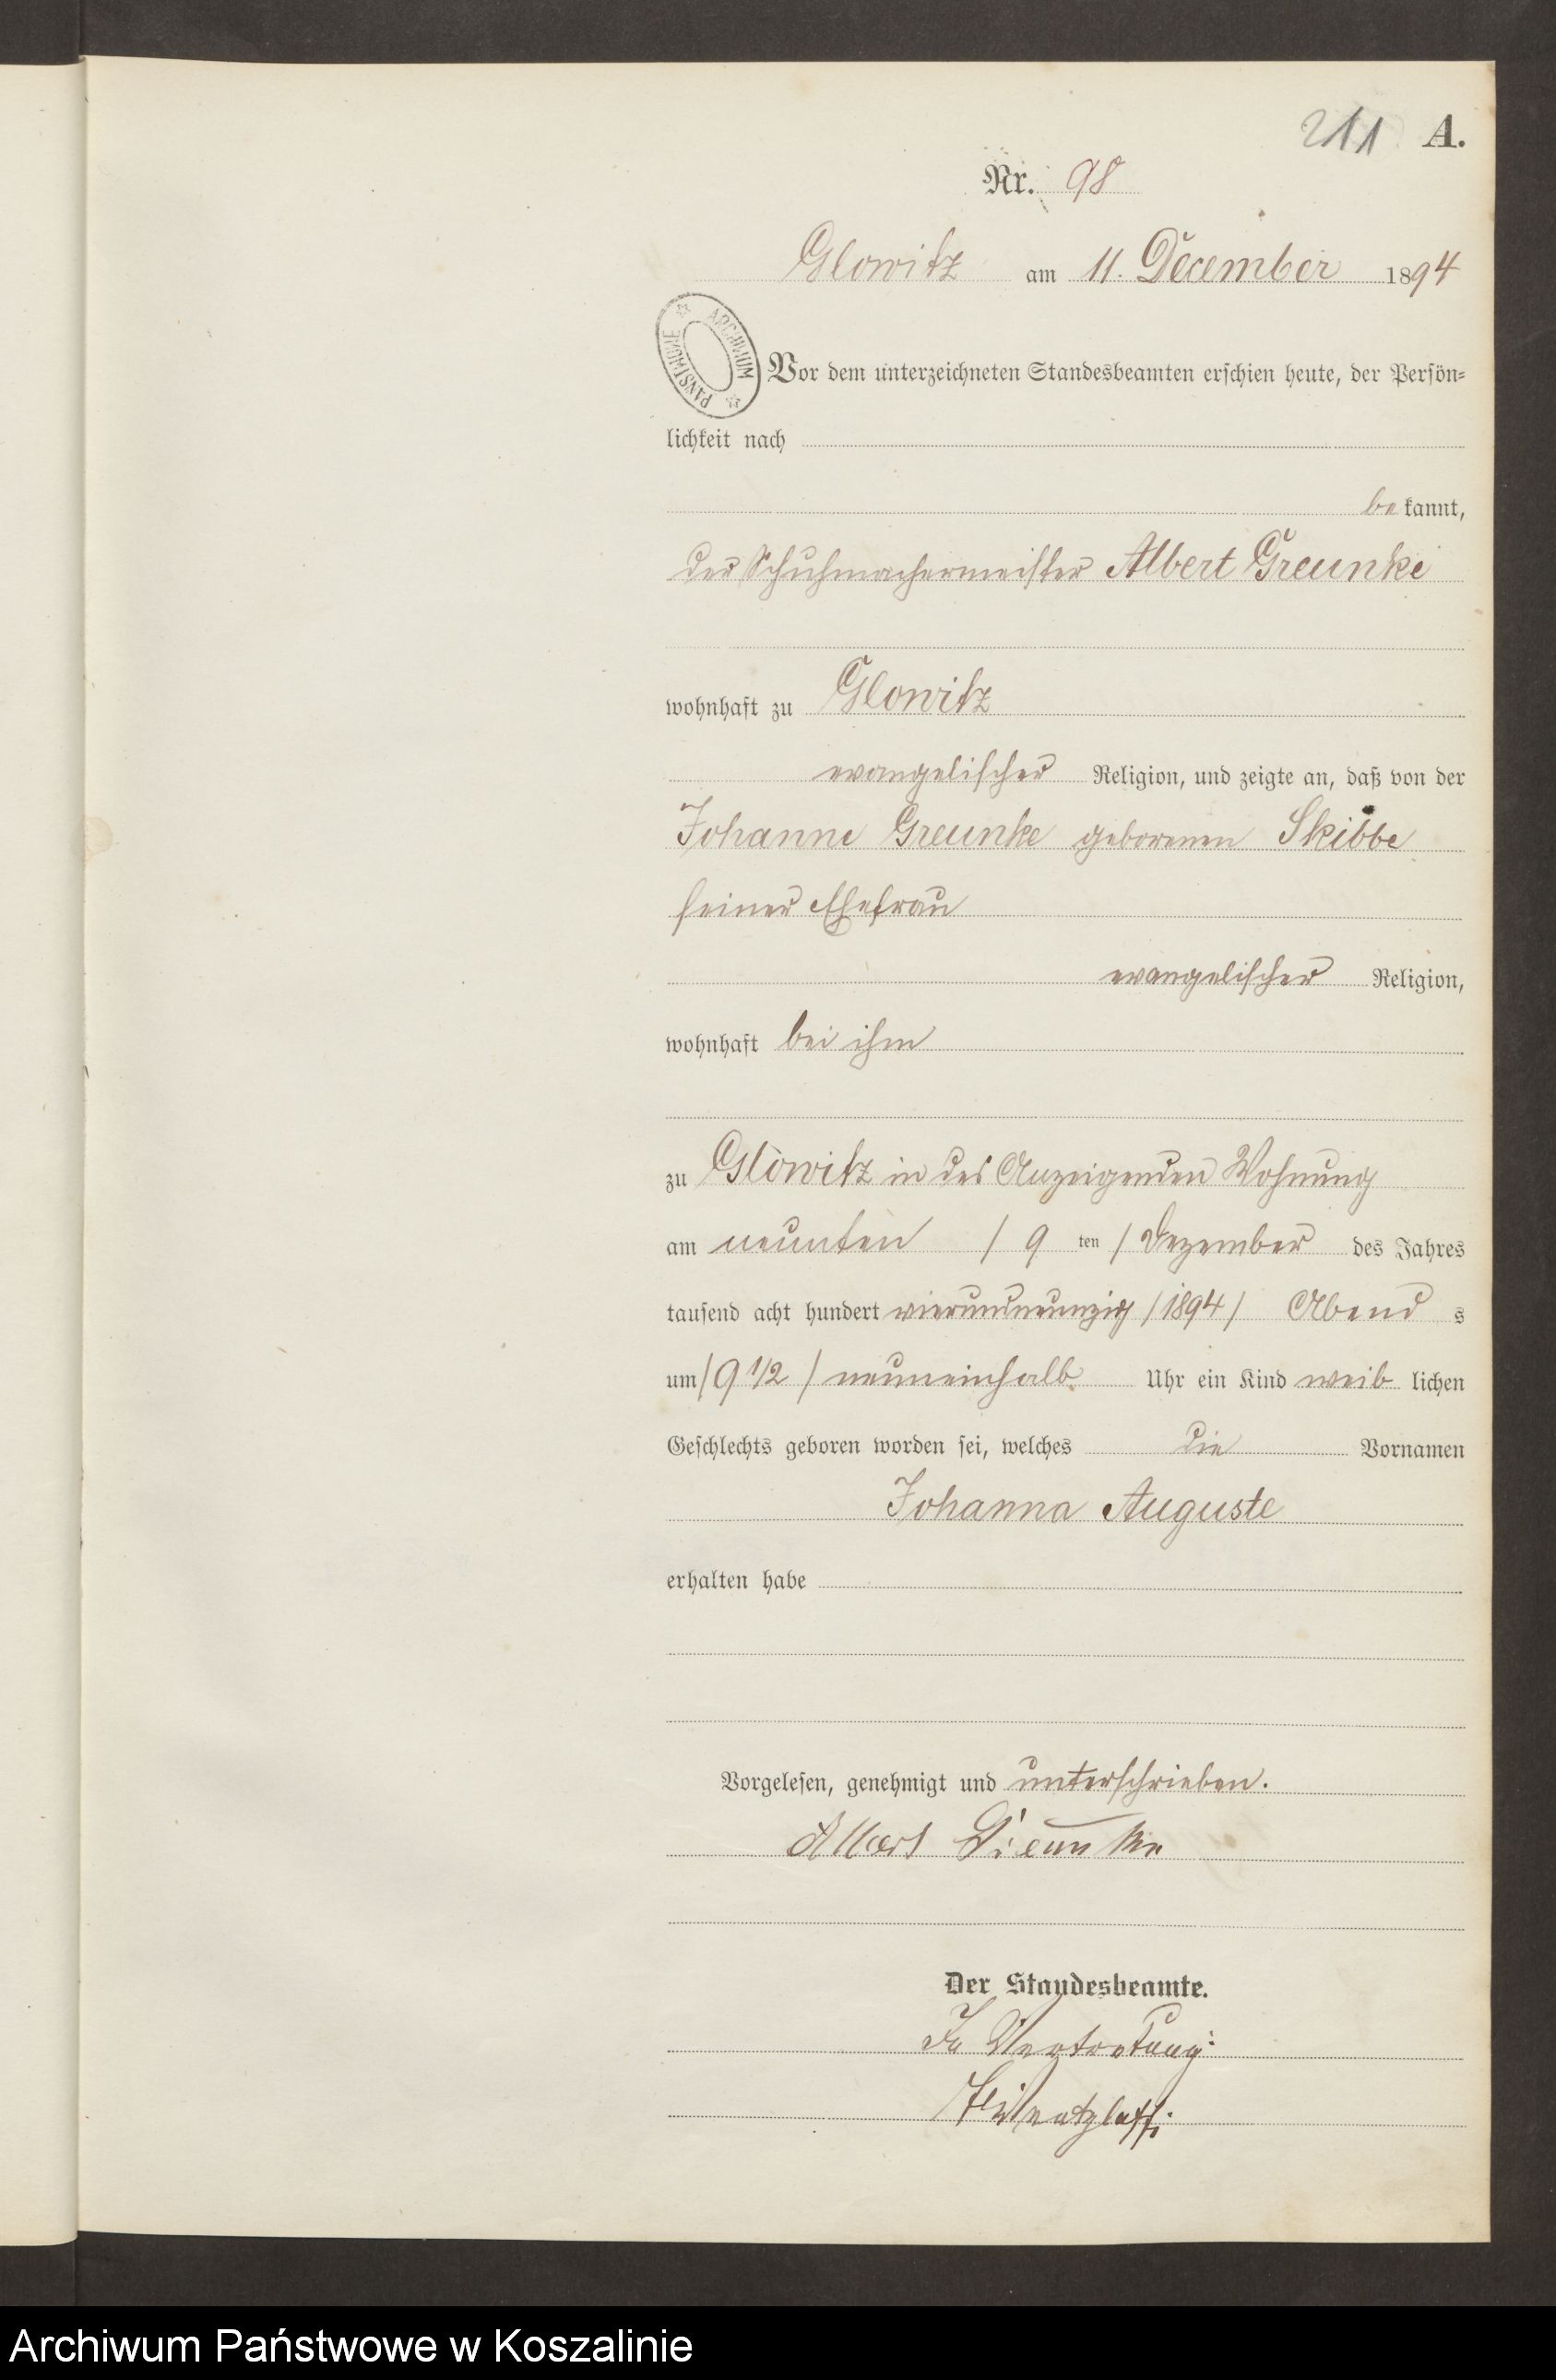 211 A.
Nr. 98
Glowitz am 11. December 1894
ARCHIWUM PAŃSTWOWE
Vor dem unterzeichneten Standesbeamten erschien heute, der Persön-
lichkeit nach
be kannt,
der Schuhmachermeister Albert Greunke
wohnhaft zu Glowitz
evangelischer Religion, und zeigte an, daß von der
Johanne Greunke geborenen Skibbe
seiner Ehefrau
evangelischer Religion,
wohnhaft bei ihm
zu Glowitz in des Anzeigenden Wohnung
am neunten / 9 ten / Dezember des Jahres
tausend acht hundert vierundneunzig / 1894 / Abend s
um / 9 1/2 / neuneinhalb Uhr ein Kind weib lichen
Geschlechts geboren worden sei, welches die Vornamen
Johanna Auguste
erhalten habe
Vorgelesen, genehmigt und unterschrieben.
Albert Greunke
Der Standesbeamte.
In Vertretung:
Archiwum Państwowe w Koszalinie